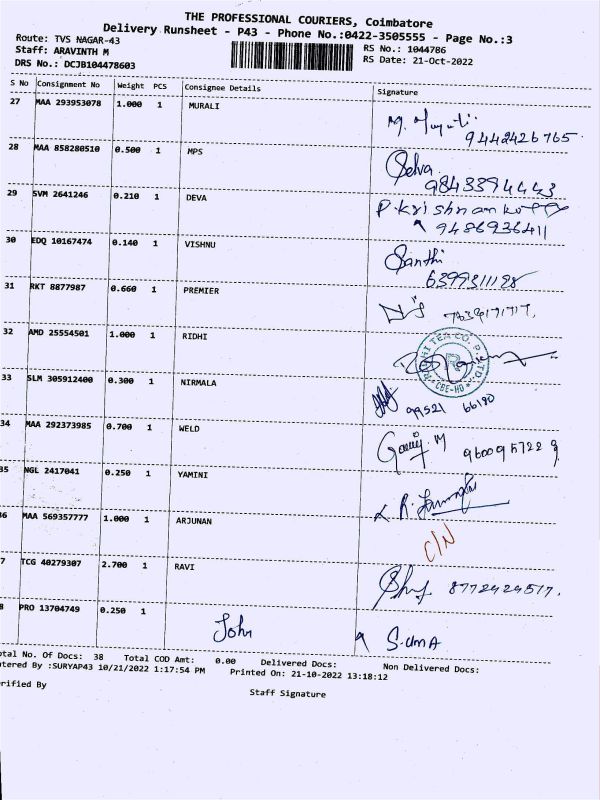 THE PROFESSIONAL COURIERS, Coimbatore
Delivery Runsheet - P43 - Phone No.:0422-3505555 - Page No.:3
Route: TVS NAGAR-43
RS No.: 1044786
Staff: ARAVINTH M
RS Date: 21-Oct-2022
DRS No.: DCJB104478603
S No Consignment No Weight PCS Consignee Details Signature
27 MAA 293953078 1.000 1 MURALI
9442426765
28 MAA 858280510 0.500 1 MPS Selva
9843394443
29 SVM 2641246 0.210 1 DEVA
9486936411
30 EDQ 10167474 0.140 1 VISHNU Santhi
31 RKT 8877987 0.660 1 PREMIER
32 AMD 25554501 1.000 1 RIDHI
CBE-HO
33 SLM 305912400 0.300 1 NIRMALA
99521 66190
34 MAA 292373985 0.700 1 WELD
35 NGL 2417041 0.250 1 YAMINI
36 MAA 569357777 1.000 1 ARJUNAN C/N
7 TCG 40279307 2.700 1 RAVI
8772424517.
8 PRO 13704749 0.250 1 John S.UMA
otal No. Of Docs: 38 Total COD Amt: 0.00 Delivered Docs: Non Delivered Docs:
tered By :SURYAP43 10/21/2022 1:17:54 PM Printed On: 21-10-2022 13:18:12
rified By
Staff Signature